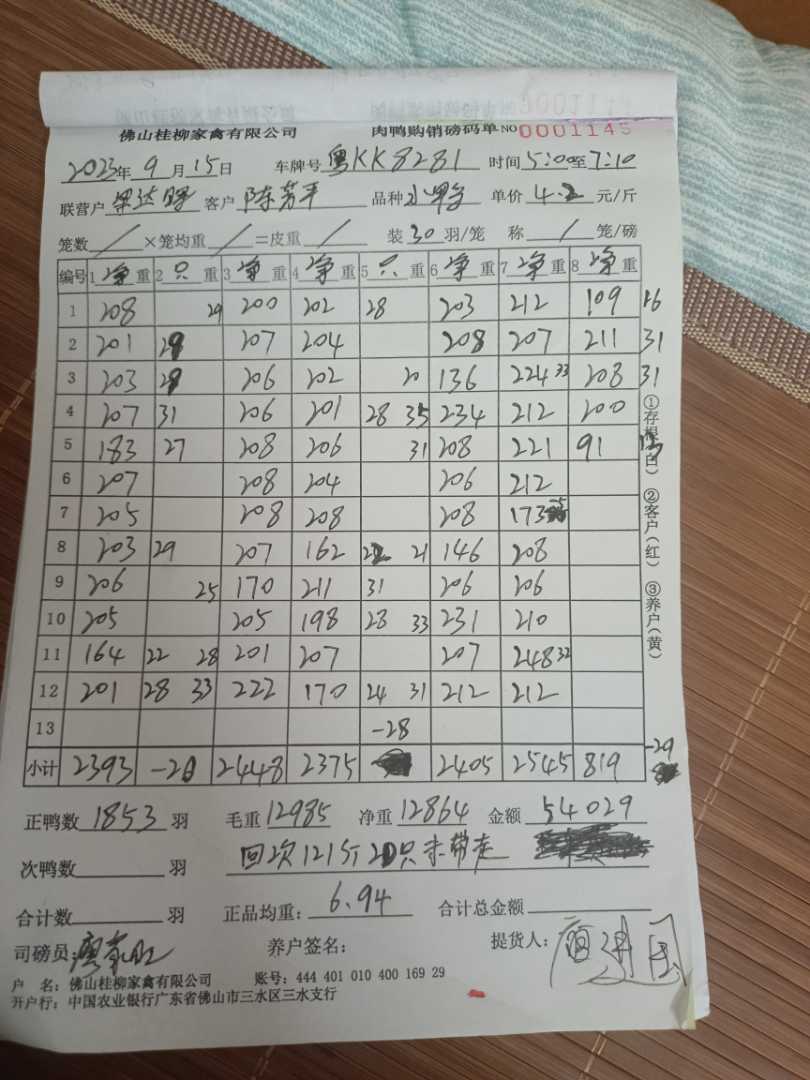 佛山桂柳家禽有限公司 肉鸭购销磅码单 NO 0001145
2023年 9 月 15 日 车牌号 粤KK8281 时间 5:00 至 7:10
联营户 客户 陈芳平 品种 单价 4.2 元/斤
笼数 / ×笼均重 / =皮重 / 装 30 羽/笼 称 / 笼/磅
编号 1 净 重 2 只 重 3 净 重 4 净 重 5 只 重 6 净 重 7 净 重 8 净 重
1 208 29 200 202 28 203 212 109 16
2 201 207 204 208 207 211 31
3 203 206 202 20 136 224 33 208 31
4 207 31 206 201 28 35 234 212 200
5 183 27 208 206 31 208 221 91
6 207 208 204 206 212
7 205 208 208 208 173
8 203 29 207 162 21 146 208
9 206 25 170 211 31 206 206
10 205 205 198 28 33 231 210
11 164 22 28 201 207 207 248 32
12 201 28 33 222 170 24 31 212 212
13 -28
小计 2393 -20 2448 2375 2405 2545 819 -29
正鸭数 1853 羽 毛重 12985 净重 12864 金额 54029
次鸭数 羽 回次121斤20只未带走
合计数 羽 正品均重: 6.94 合计总金额
司磅员: 养户签名: 提货人:
户 名: 佛山桂柳家禽有限公司 账号: 444 401 010 400 169 29
开户行: 中国农业银行广东省佛山市三水区三水支行
①存根(白) ②客户(红) ③养户(黄)